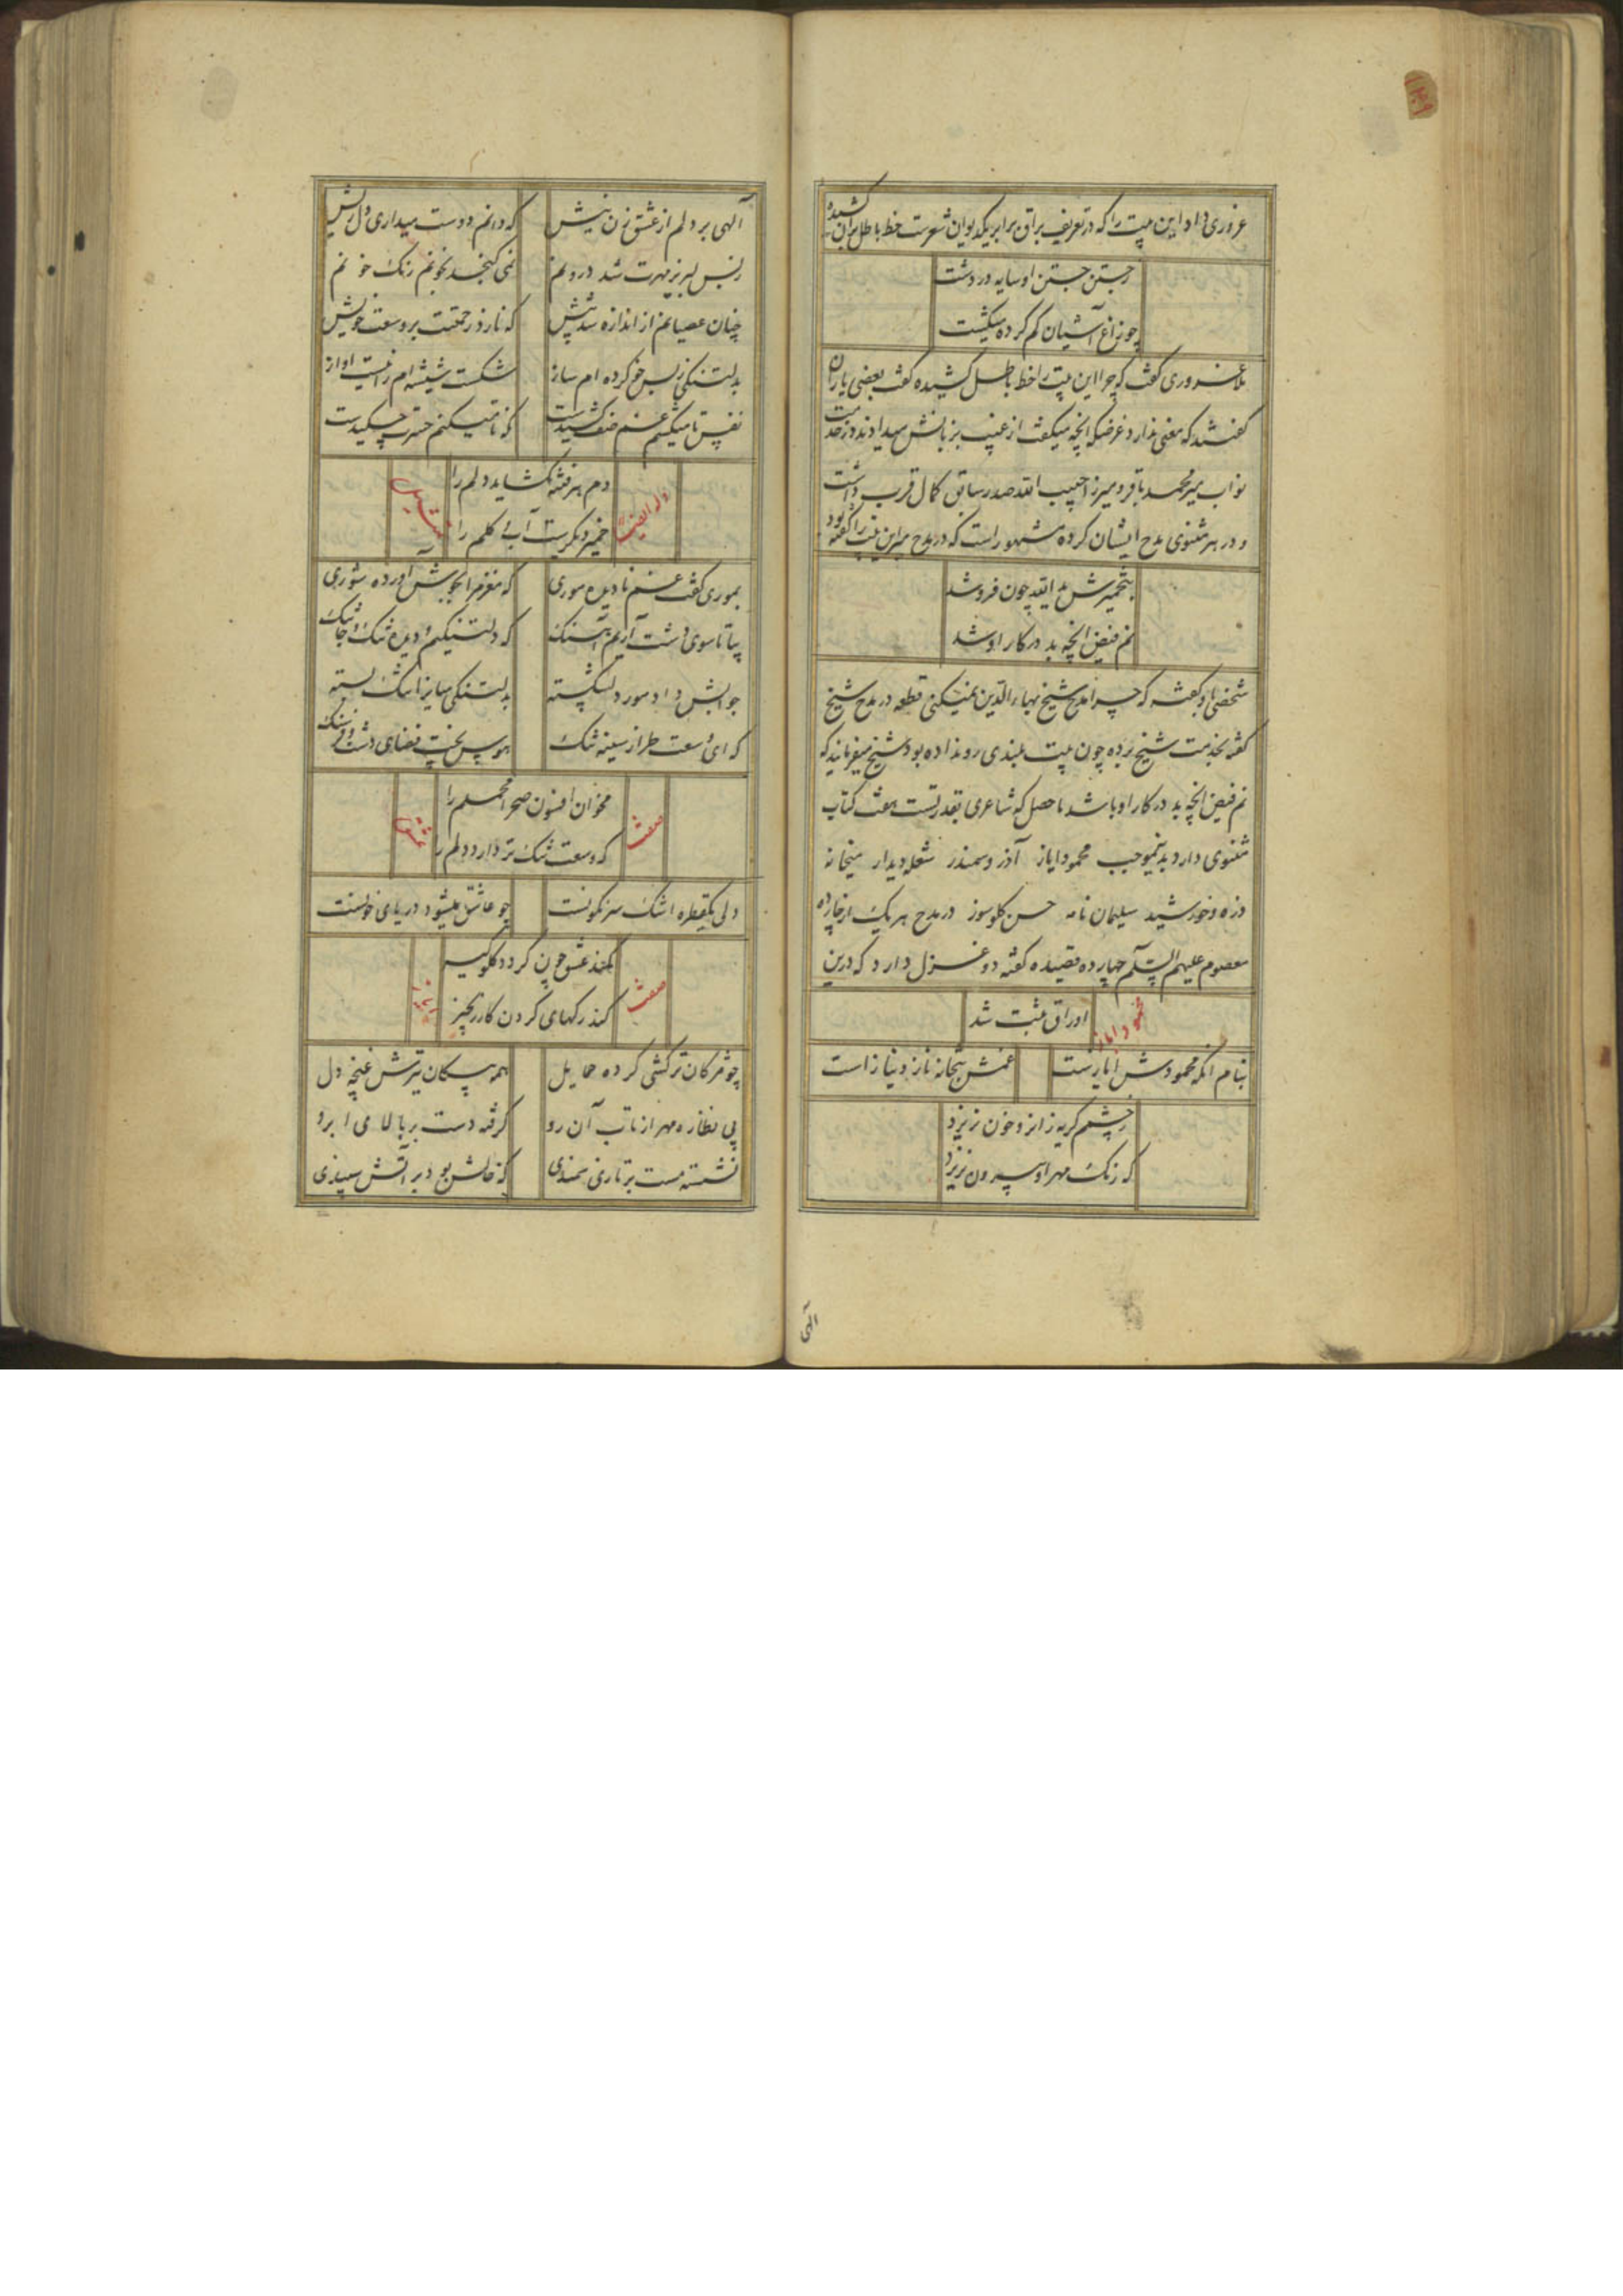 غروری داد این بیت را که در تعریف براق برابر یکدیوان شعرست خط باطل بران کشیده
ز جستن جستن او سایه در دشت
چو زاغ آشیان گم کرده میگشت
ملا غروری گفت که چرا این بیت را خط باطل کشیده گفت بعضی یاران
گفتند که معنی ندارد غرضکه آنچه میگفت از غیب بزبانش میدادند در خدمت
نواب میر محمد باقر و میرزا حبیب الله صدر سابق کمال قرب داشت
و در هر مثنوی مدح ایشان کرده مشهور است که در مدح میر این بیت را گفته بود
بتخمیرش ید الله چون فروشد
نم فیض آنچه بد در کار او شد
شخصی باو گفت که چرا مدح شیخ بهاء الدین نمیکنی قطعه در مدح شیخ
گفته بخدمت شیخ برده چون بیت بلندی رو نداده بود شیخ میفرمایند که
نم فیض آنچه بد در کار او باشد حاصل که شاعری بقدرتست هفت کتاب
مثنوی دارد بدینموجب محمود ایاز آذر و سمندر شعله دیدار میخانه
ذره و خورشید سلیمان نامه حسن گلوسوز در مدح هر یک از چهارده
معصوم علیهم السلام چهارده قصیده گفته دو غزل دارد که درین
اوراق ثبت شد
محمود ایاز
بنام آنکه محمودش ایازست
غمش بتخانه ناز و نیاز است
ز چشمم گریه زانرو خون نریزد
که رنگ مهر او بیرون نریزد
الهی
الهی بر دلم از عشق زن نیش
که دانم دوست میداری دل ریش
ز بس لبریز مهرت شد درونم
نمی گنجد بخونم رنگ خونم
چنان عصیانم از اندازه شد بیش
که نازد رحمتت بر وسعت خویش
بدلتنگی ز بس خو کرده ام ساز
شکست شیشه ام را نیست آواز
نفس تا میکشم غم صف کشیدست
که تا می کنم حسرت چکیدست
وله ایضا
دم هر فتنه نگشاید دلم را
خمیر دیگرست آب و گلم را
تمثیل
بموری گفت غم نادیده موری
که مغزم را بجوش آورده شوری
بیا تا سوی دشت آریم آهنگ
که دلتنگیم و دیده تنگ و جا تنگ
جوابش داد مور دلشکسته
بدلتنگی میانرا تنگ بسته
که ای وسعت طراز سینه تنگ
هوس پخت فضای دشت و فرسنگ
صفت
مخوان افسون صحرا محملم را
که وسعت تنگ تر دارد دلم را
عشق
دلی یکقطره اشک سرنگونست
چو عاشق میشود دریای خونست
صفت
کمند عشق چون گردد گلوگیر
کند رگهای گردن کار زنجیر
ایاز
چو مژگان ترکشی کرده حمایل
همه پیکان تیرش غنچه دل
پی نظاره مهر از تاب آن رو
گرفته دست بر بالای ابرو
نشسته مست بر تازی سمندی
که خالش بود بر آتش سپندی